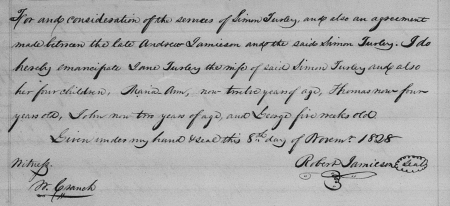 For and consideration of the services of Simon Turley and also an agreement
made between the late Andrew Jamieson and the said Simon Turley. I do
hereby emancipate Jane Turley the wife of said Simon Turley and also
her four children, Maria Ann, now twelve years of age, Thomas now four
years old, John now two years of age, and George five weeks old
Given under my hand & seal this 8th day of Novemr. 1828
Witness
Robert Jamieson
Seal
W. Cranch